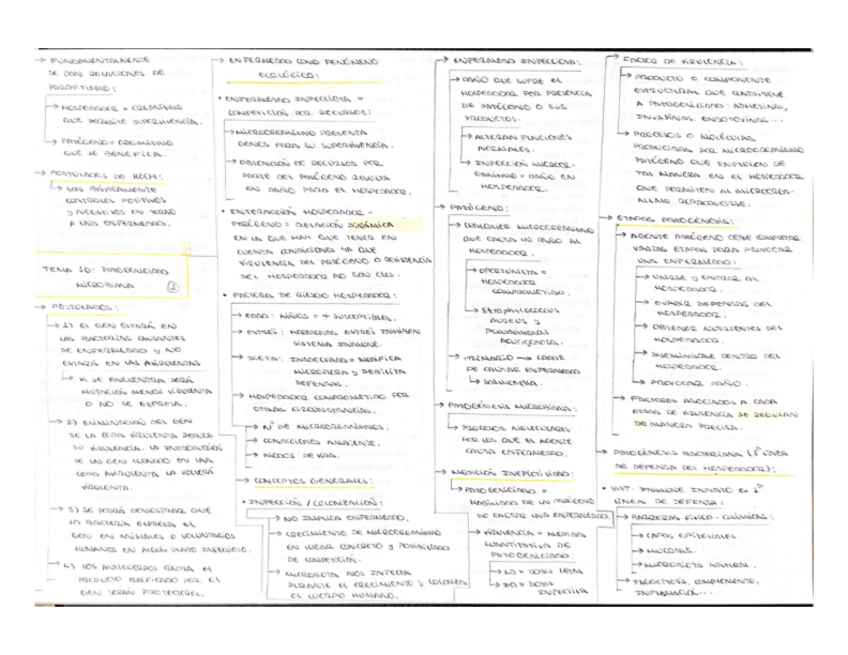 → FUNDAMENTALMENTE
SE DAN RELACIONES DE
PARASITISMO:
→ HOSPEDADOR = ORGANISMO
QUE PERMITE SUPERVIVENCIA.
→ PATÓGENO = ORGANISMO
QUE SE BENEFICIA.
→ POSTULADOS DE KOCH:
↳ SON BÁSICAMENTE
CONTROLES POSITIVOS
Y NEGATIVOS EN TORNO
A UNA ENFERMEDAD.
TEMA 10: PATOGENICIDAD
MICROBIANA
→ POSTULADOS:
→ 1) EL GEN ESTARÁ EN
LAS BACTERIAS CAUSANTES
DE ENFERMEDAD Y NO
ESTARÁ EN LAS AVIRULENTAS
↳ SI SE ENCUENTRA SERÁ
MUTACIÓN MENOS VIRULENTA
O NO SE EXPRESA.
→ 2) ELIMINACIÓN DEL GEN
DE LA CEPA VIRULENTA REDUCE
SU VIRULENCIA. LA INTRODUCCIÓN
DE UN GEN CLONADO EN UNA
CEPA AVIRULENTA LA VOLVERÁ
VIRULENTA.
→ 3) SE PODRÁ DEMOSTRAR QUE
LA BACTERIA EXPRESA EL
GEN EN ANIMALES O VOLUNTARIOS
HUMANOS EN ALGÚN PUNTO INFECCIOSO.
→ 4) LOS ANTICUERPOS CONTRA EL
PRODUCTO CODIFICADO POR EL
GEN SERÁN PROTECTORES.
→ ENFERMEDAD COMO FENÓMENO
ECOLÓGICO:
• ENFERMEDAD INFECCIOSA =
COMPETICIÓN POR RECURSOS:
→ MICROORGANISMO PRESENTA
GENES PARA SU SUPERVIVENCIA.
→ OBTENCIÓN DE RECURSOS POR
PARTE DEL PATÓGENO RESULTA
EN DAÑO PARA EL HOSPEDADOR.
• INTERACCIÓN HOSPEDADOR -
PATÓGENO = RELACIÓN DINÁMICA
EN LA QUE HAY QUE TENER EN
CUENTA CONDICIONES YA QUE
VIRULENCIA DEL PATÓGENO O RESISTENCIA
DEL HOSPEDADOR NO SON CTES.
• FACTORES DE RIESGO HOSPEDADOR:
→ EDAD: NIÑOS = + SUSCEPTIBLES.
→ ESTRÉS: HORMONAS ESTRÉS INHIBEN
SISTEMA INMUNE.
→ DIETA: INADECUADA = MODIFICA
MICROFLORA Y DEBILITA
DEFENSAS.
→ HOSPEDADOR COMPROMETIDO POR
OTRAS CIRCUNSTANCIAS.
→ Nº DE MICROORGANISMOS.
→ CONDICIONES AMBIENTE.
→ MODOS DE VIDA.
→ CONCEPTOS GENERALES:
• INFECCIÓN / COLONIZACIÓN:
→ NO IMPLICA ENFERMEDAD.
→ CRECIMIENTO DE MICROORGANISMO
EN LUGAR CONCRETO Y POSIBILIDAD
DE COMPETICIÓN.
→ MICROBIOTA NOS INFECTA
DURANTE EL CRECIMIENTO Y COLONIZA
EL CUERPO HUMANO.
→ ENFERMEDAD INFECCIOSA:
→ DAÑO QUE SUFRE EL
HOSPEDADOR POR PRESENCIA
DE PATÓGENO O SUS
PRODUCTOS.
→ ALTERAN FUNCIONES
NORMALES.
→ INFECCIÓN MICROOR-
GANISMO = DAÑO EN
HOSPEDADOR.
→ PATÓGENO:
→ CUALQUIER MICROORGANISMO
QUE CAUSA UN DAÑO AL
HOSPEDADOR.
→ OPORTUNISTA =
HOSPEDADOR
COMPROMETIDO.
↳ STAPHYLOCOCCUS
AUREUS Y
PSEUDOMONAS
AERUGINOSA.
→ PRIMARIO → CAPAZ
DE CAUSAR ENFERMEDAD
↳ SALMONELLA.
→ PATOGÉNESIS MICROBIANA:
→ PROCESOS MOLECULARES
POR LOS QUE EL AGENTE
CAUSA ENFERMEDAD.
→ MEDICIÓN INFECTIVIDAD:
→ PATOGENICIDAD =
HABILIDAD DE UN PATÓGENO
DE CAUSAR UNA ENFERMEDAD.
→ VIRULENCIA = MEDIDA
CUANTITATIVA DE
PATOGENICIDAD:
→ LD = DOSIS LETAL
→ ID = DOSIS
INFECTIVA
→ FACTOR DE VIRULENCIA:
→ PRODUCTO O COMPONENTE
ESTRUCTURAL QUE CONTRIBUYE
A PATOGENICIDAD: ADHESINAS,
INVASINAS, ENDOTOXINAS...
→ PROCESOS O MOLÉCULAS
PRODUCIDAS POR MICROORGANISMO
PATÓGENO QUE INFLUYEN DE
TAL MANERA EN EL HOSPEDADOR
QUE PERMITEN AL MICROORGA-
NISMO REPRODUCIRSE.
→ ETAPAS PATOGÉNESIS:
→ AGENTE PATÓGENO DEBE COMPLETAR
VARIAS ETAPAS PARA PROVOCAR
UNA ENFERMEDAD:
→ UNIRSE Y ENTRAR AL
HOSPEDADOR.
→ EVADIR DEFENSAS DEL
HOSPEDADOR.
→ OBTENER NUTRIENTES DEL
HOSPEDADOR.
→ DISEMINARSE DENTRO DEL
HOSPEDADOR.
→ PROVOCAR DAÑO.
→ FACTORES ASOCIADOS A CADA
ETAPA DE VIRULENCIA SE REGULAN
DE MANERA PRECISA.
→ PATOGÉNESIS BACTERIANA (1ª LÍNEA
DE DEFENSA DEL HOSPEDADOR):
• SIST. INMUNE INNATO ES 1ª
LÍNEA DE DEFENSA:
→ BARRERAS FÍSICO-QUÍMICAS:
→ CAPAS EPITELIALES.
→ MUCOSAS.
→ MICROBIOTA NATURAL.
→ FAGOCITOSIS, COMPLEMENTO,
INFLAMACIÓN...